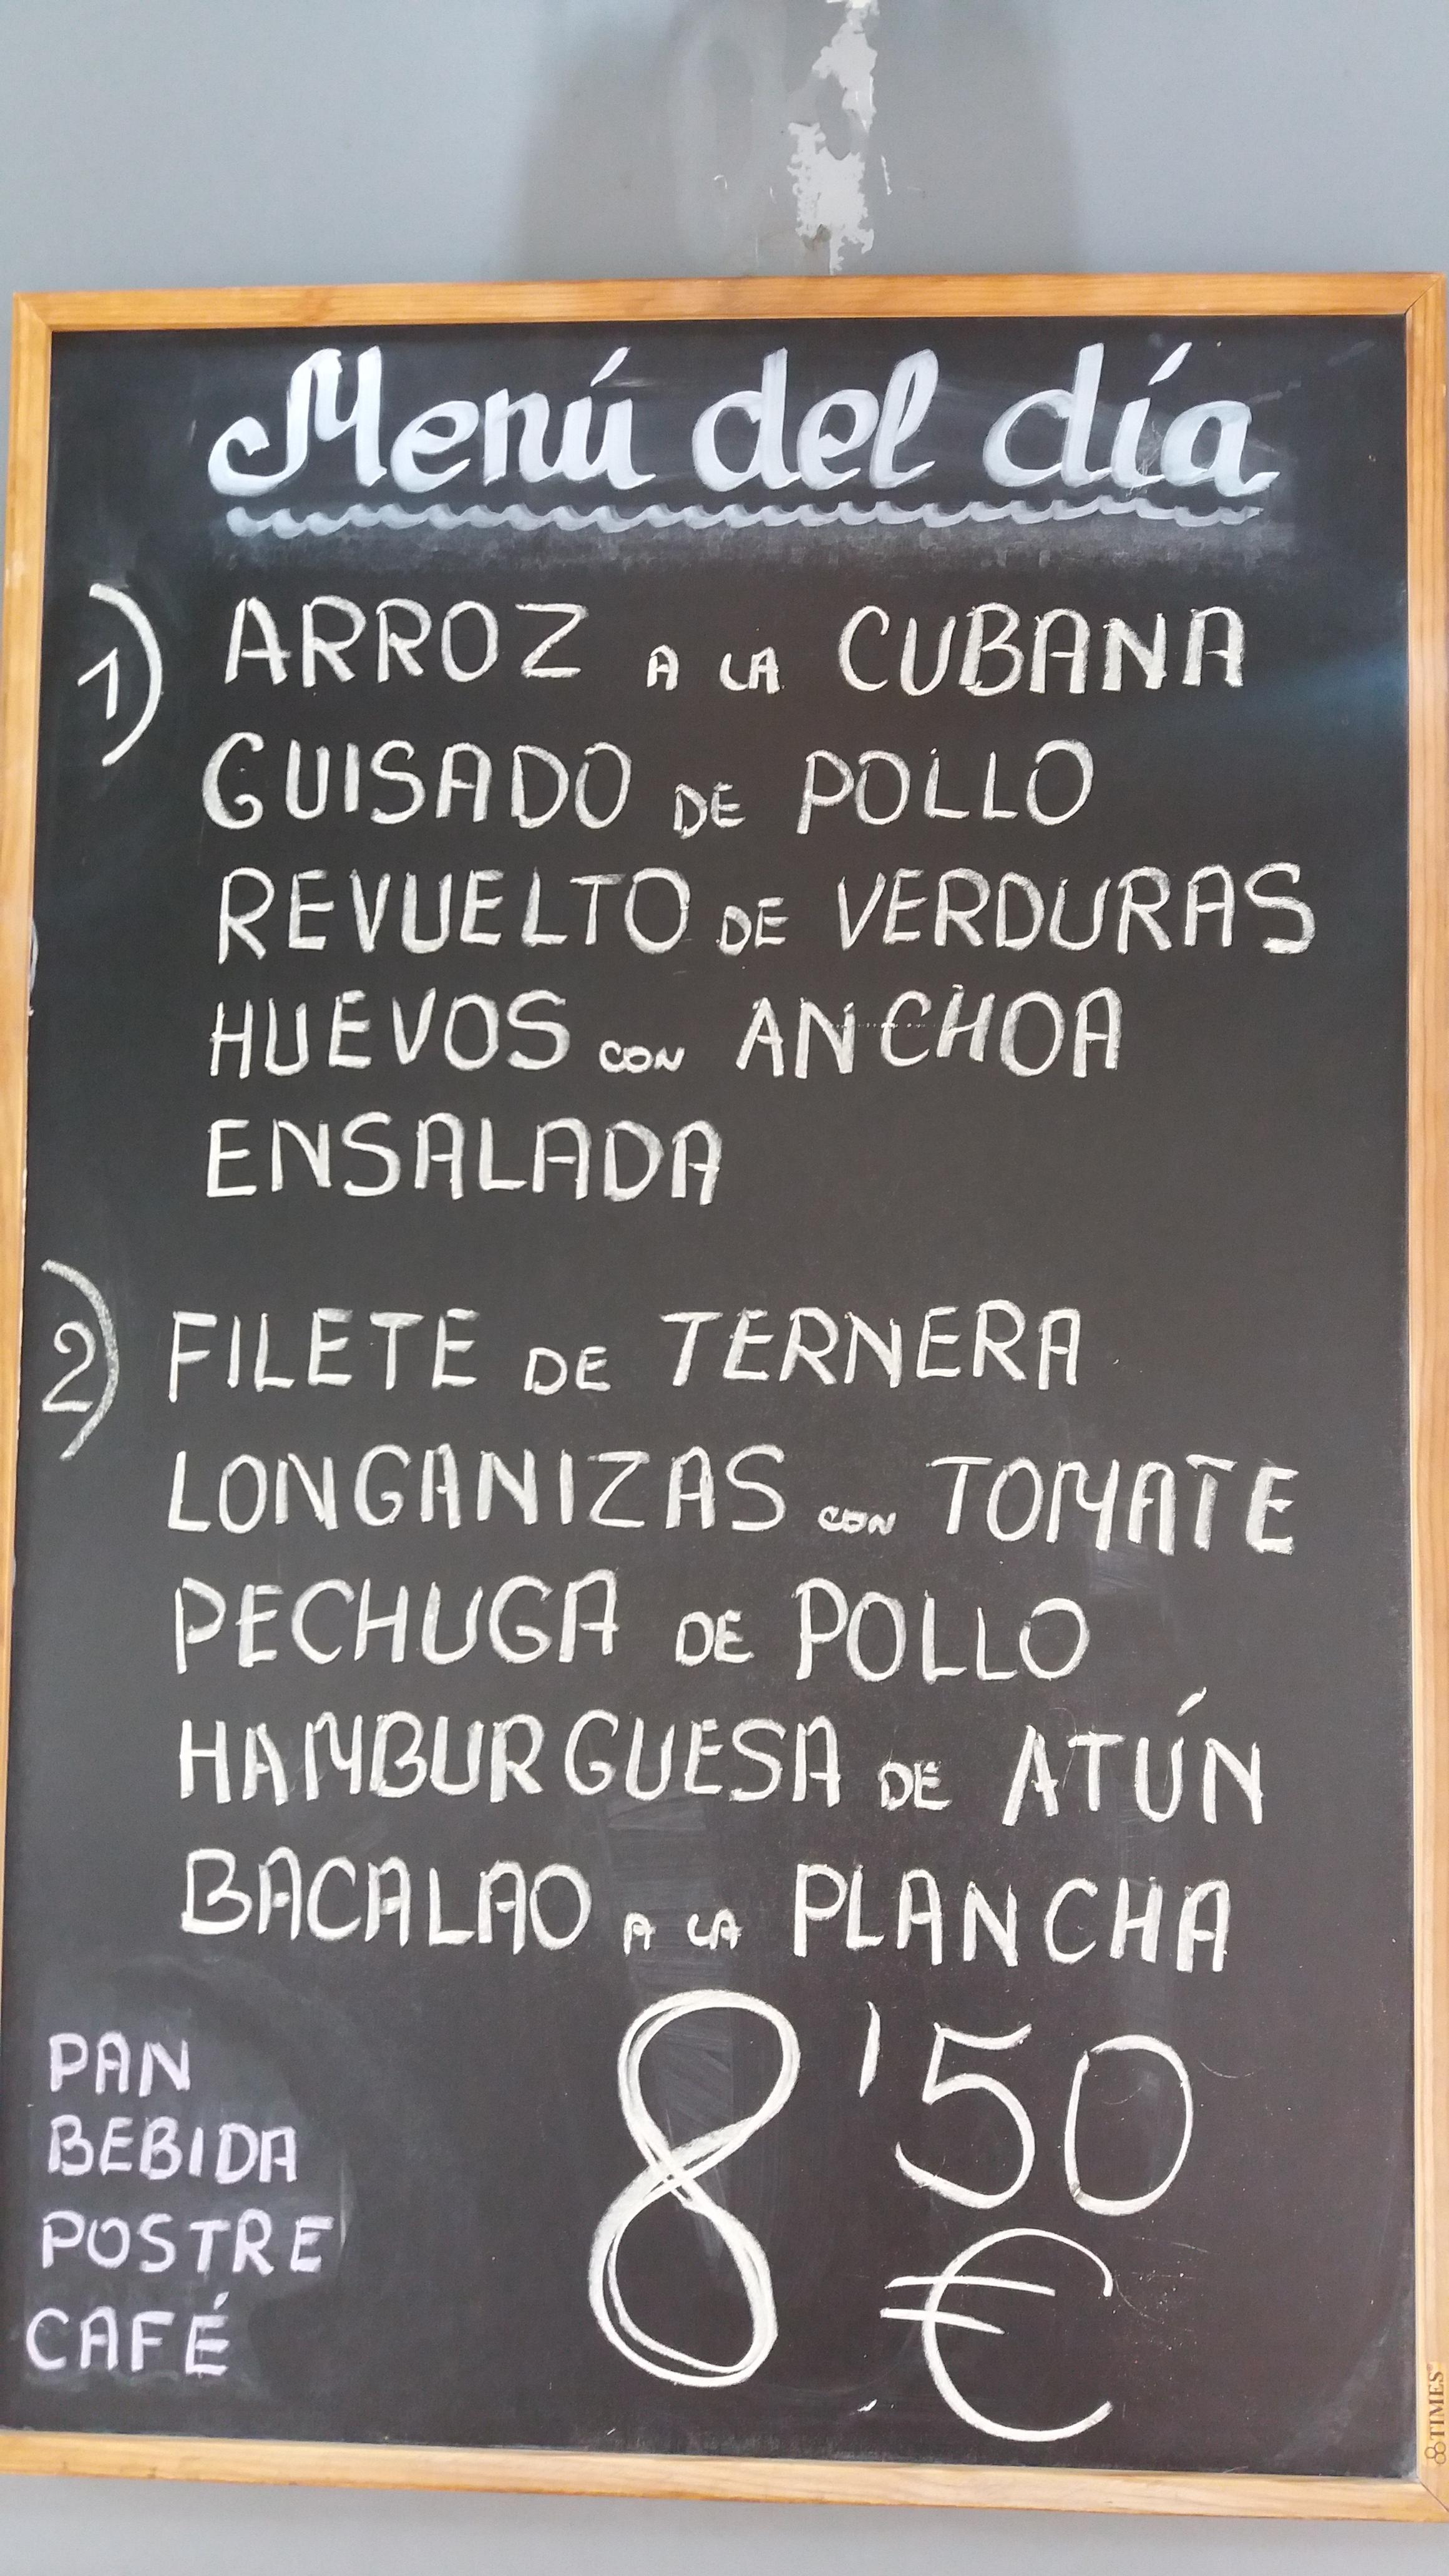 Menú del día
1) ARROZ A LA CUBANA
GUISADO DE POLLO
REVUELTO DE VERDURAS
HUEVOS CON ANCHOA
ENSALADA
2) FILETE DE TERNERA
LONGANIZAS CON TOMATE
PECHUGA DE POLLO
HAMBURGUESA DE ATÚN
BACALAO A LA PLANCHA
PAN
BEBIDA
POSTRE
CAFÉ
8'50
€
TIMES